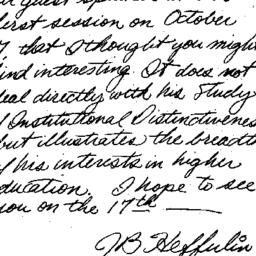 first session on October
7 that I thought you might
find interesting. It does not
deal directly with his study
of Institutional Distinctiveness
but illustrates the breadth
of his interests in higher
education. I hope to see
you on the 17th —
JB Hefferlin